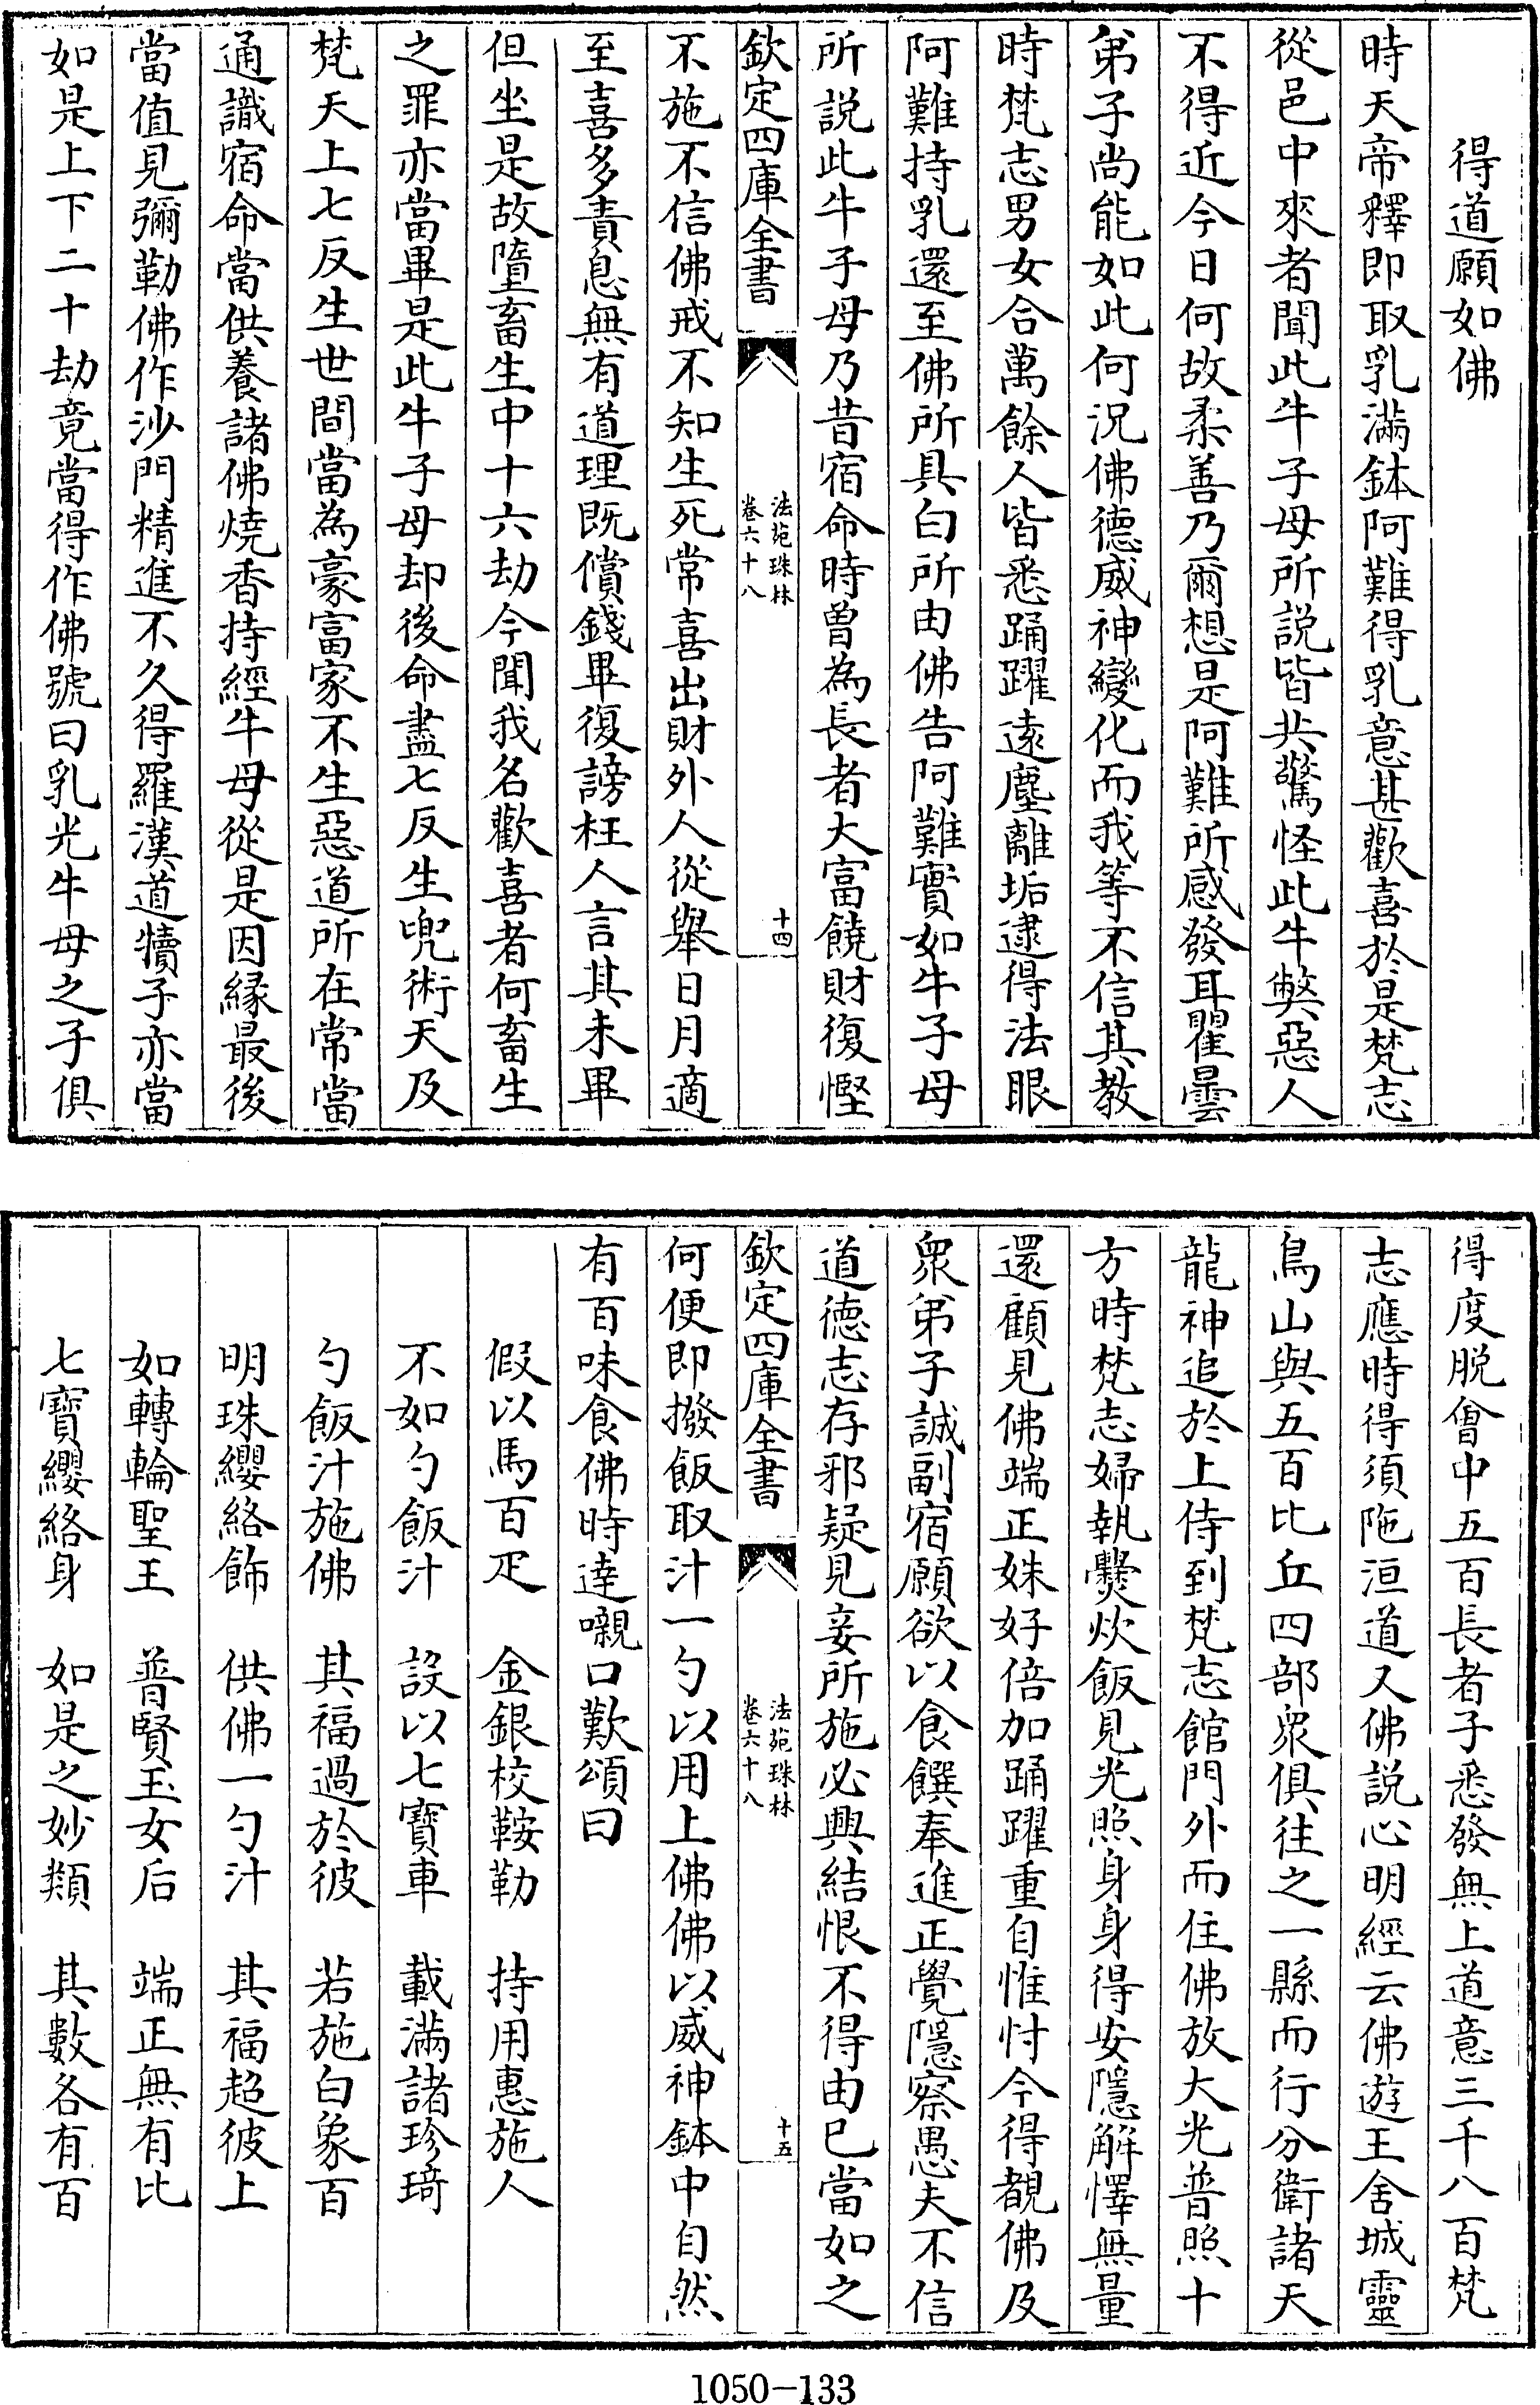 得道願如佛
時天帝釋即取乳滿鉢阿難得乳意甚歡喜於是梵志
從邑中來者聞此牛子母所説皆共驚怪此牛弊惡人
不得近今日何故柔善乃爾想是阿難所感發耳瞿曇
弟子尚能如此何況佛德威神變化而我等不信其教
時梵志男女合萬餘人皆悉踊躍遠塵離垢逮得法眼
阿難持乳還至佛所具白所由佛告阿難實如牛子母
所説此牛子母乃昔宿命時曽為長者大富饒財復慳
欽定四庫全書
法苑珠林
卷六十八
十四
不施不信佛戒不知生死常喜出財外人從舉日月適
至喜多責息無有道理既償錢畢復謗枉人言其未畢
但坐是故墮畜生中十六劫今聞我名歡喜者何畜生
之罪亦當畢是此牛子母却後命盡七反生兜術天及
梵天上七反生世間當為豪富家不生惡道所在常當
通識宿命當供養諸佛燒香持經牛母從是因緣最後
當值見彌勒佛作沙門精進不久得羅漢道犢子亦當
如是上下二十劫竟當得作佛號曰乳光牛母之子俱
得度脱會中五百長者子悉發無上道意三千八百梵
志應時得須陁洹道又佛説心明經云佛遊王舍城靈
鳥山與五百比丘四部衆俱往之一縣而行分衛諸天
龍神追於上侍到梵志館門外而住佛放大光普照十
方時梵志婦執爨炊飯見光照身身得安隱解懌無量
還顧見佛端正姝好倍加踊躍重自惟忖今得覩佛及
衆弟子誠副宿願欲以食饌奉進正覺隱察愚夫不信
道德志存邪疑見妾所施必興結恨不得由已當如之
欽定四庫全書
法苑珠林
卷六十八
十五
何便即撥飯取汁一勺以用上佛佛以威神鉢中自然
有百味食佛時達嚫口歎頌曰
假以馬百疋　金銀校鞍勒　持用惠施人
不如勺飯汁　設以七寶車　載滿諸珍琦
勺飯汁施佛　其福過於彼　若施白象百
明珠纓絡飾　供佛一勺汁　其福超彼上
如轉輪聖王　普賢玉女后　端正無有比
七寶纓絡身　如是之妙類　其數各有百
1050-133